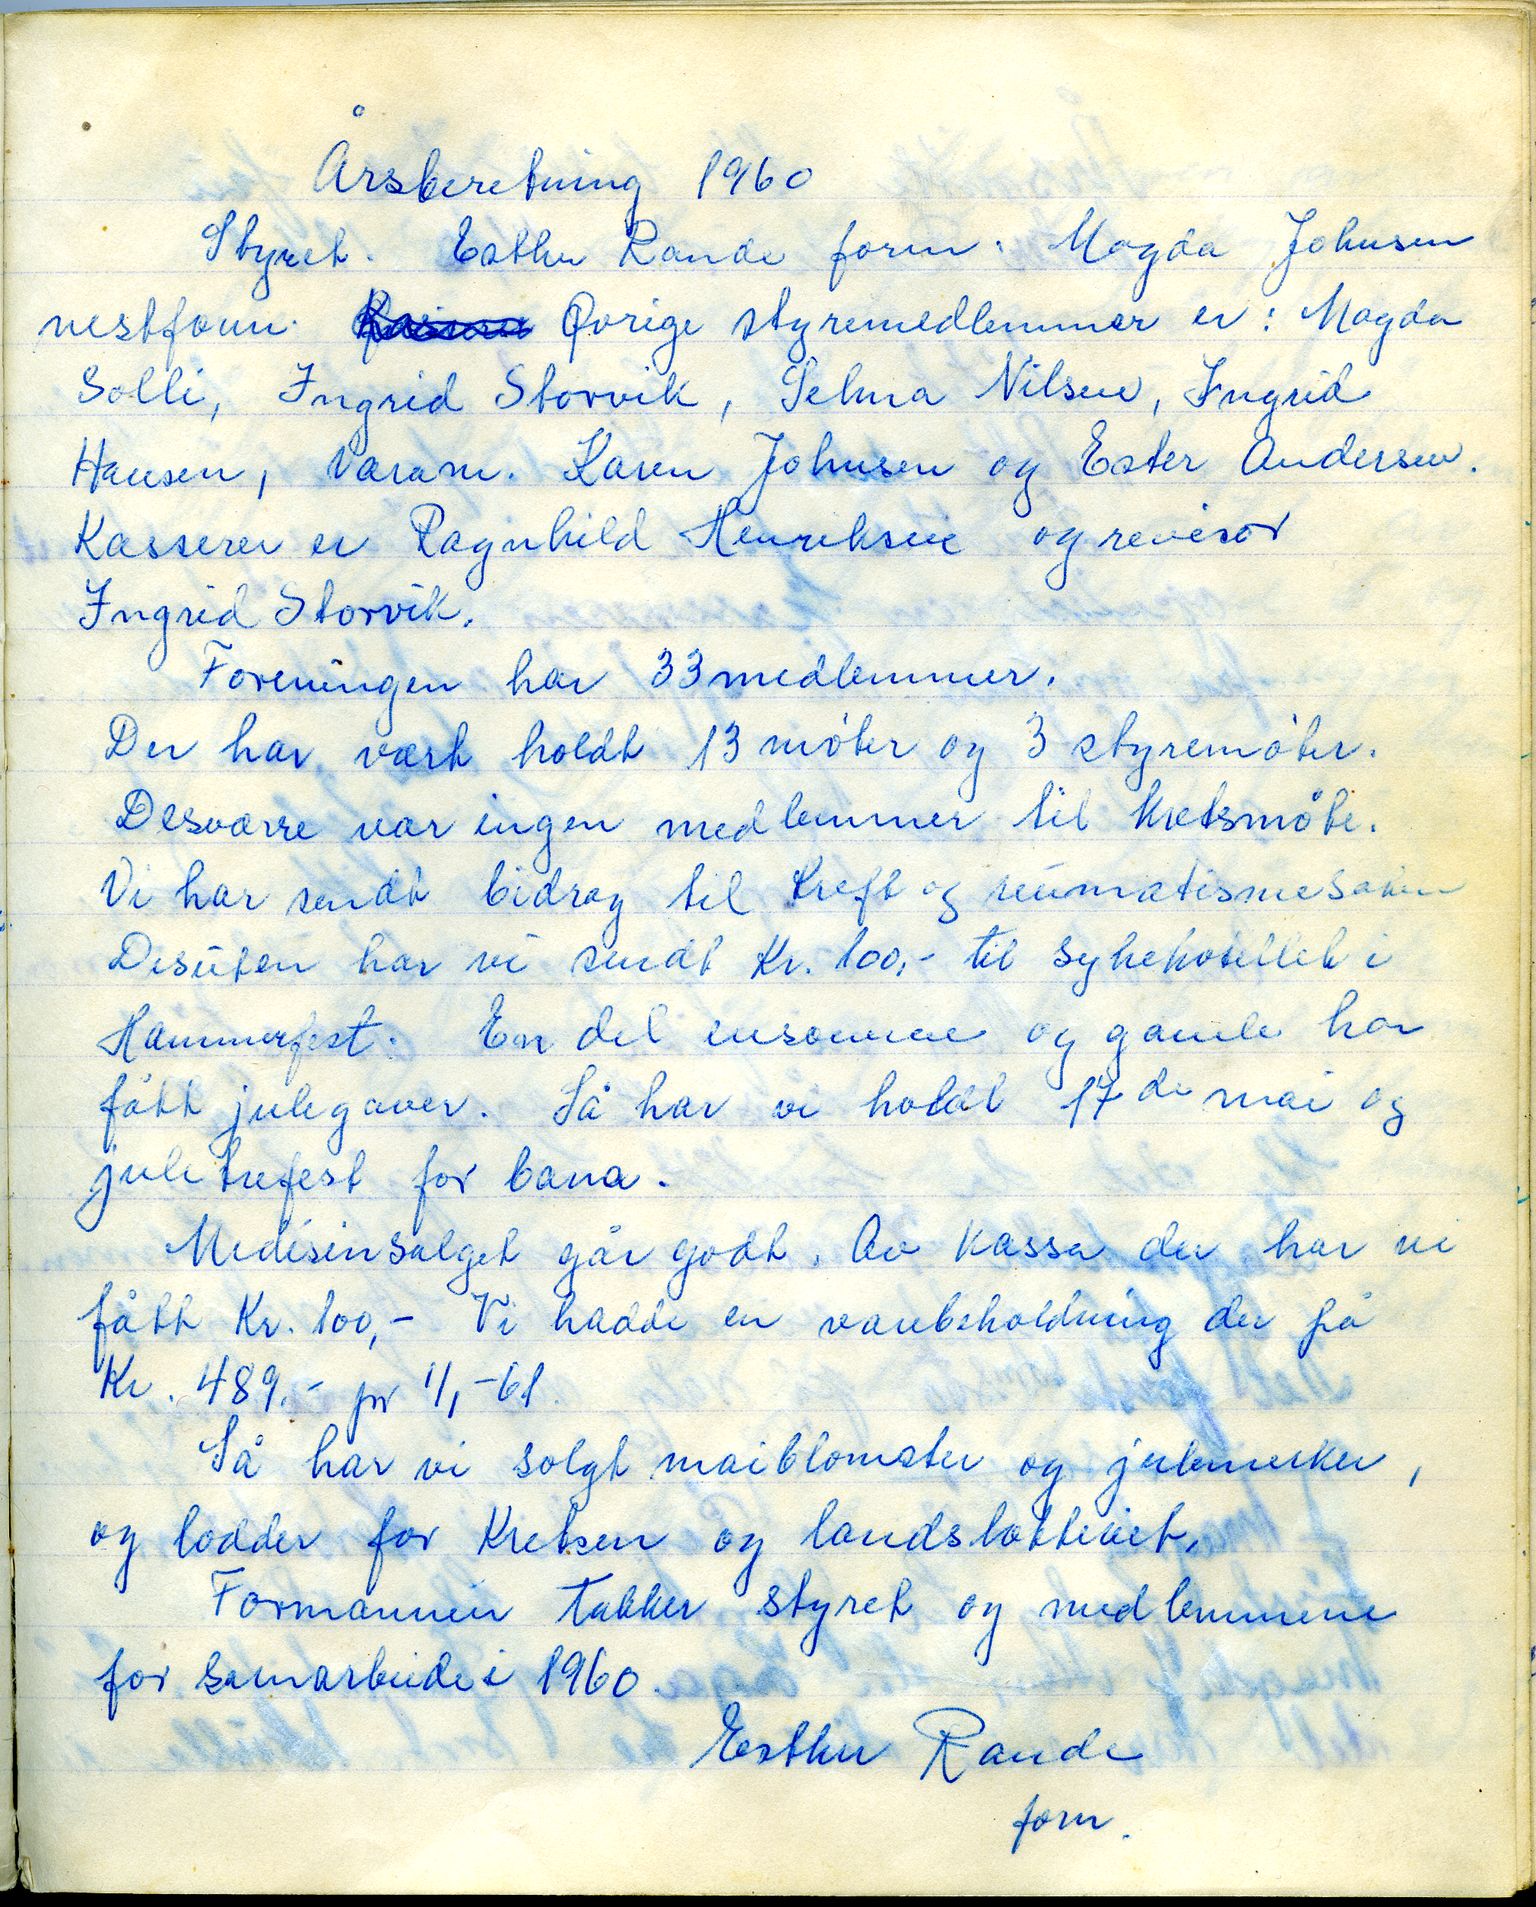 Årsberetning 1960
Styret. Esther Rande form: Magda Johnsen
nestform. Øvrige styremedlemmer er: Magda
Solli, Ingrid Storvik, Selma Nilsen, Ingrid
Hansen, Varam. Karen Johnsen og Ester Andersen.
Kasserer er Ragnhild Henriksen og revisor
Ingrid Storvik.
Foreningen har 33 medlemmer.
Der har vært holdt 13 møter og 3 styremøter.
Desværre var ingen medlemmer til kretsmøte.
Vi har sendt bidrag til Kreft og reumatismesaken
Desuten har vi sendt Kr. 100,- til sykehotellet i
Hammerfest. En del ensomme og gamle har
fått julegaver. Så har vi holdt 17de mai og
juletrefest for barna.
Medisinsalget går godt. Av kassa der har vi
fått Kr. 100,- Vi hadde en varebeholdning der på
Kr. 489.- pr 1/1-61.
Så har vi solgt maiblomster og julemerker,
og lodder for Kretsen og landslotteriet.
Formannen takker styret og medlemmene
for samarbeide i 1960.
Esther Rande
form.